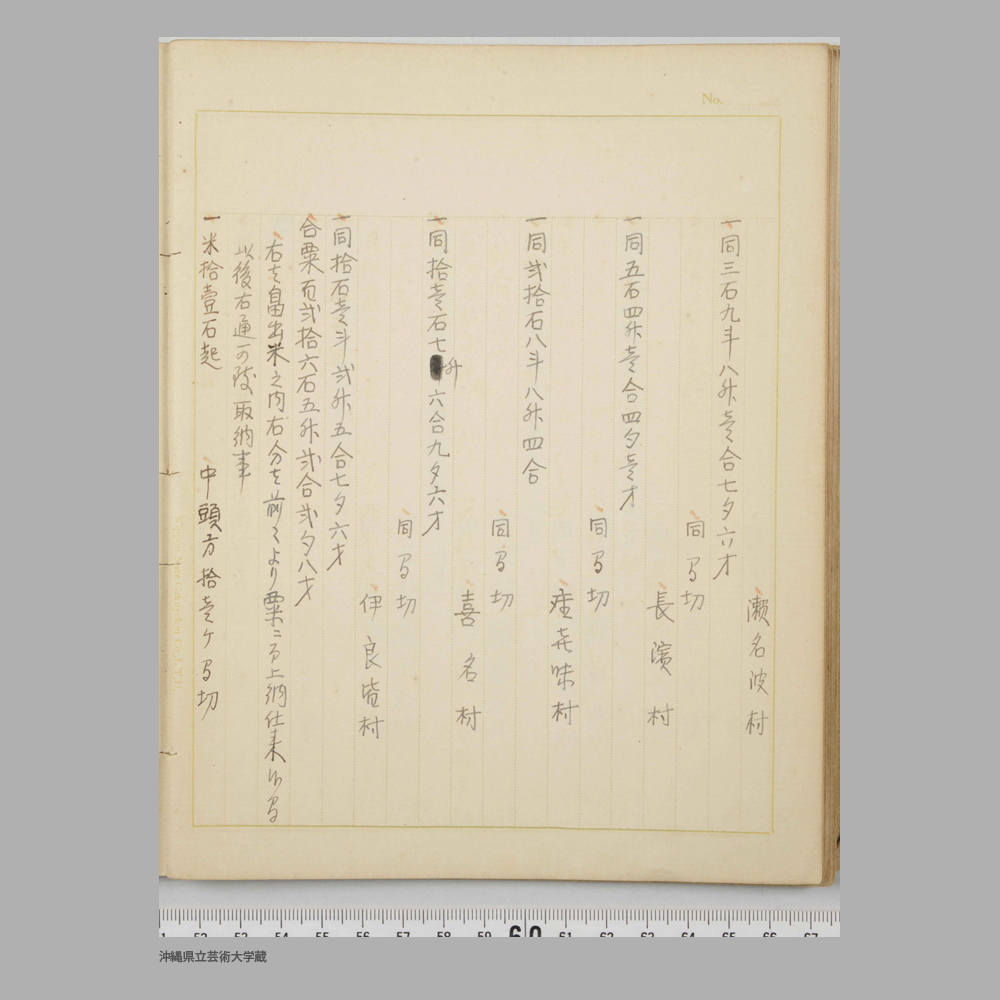 No.
瀬名波村
一同三石九斗八升壱合七夕六才
同間切
長濱村
一同五石四升壱合四夕壱才
同間切
座喜味村
一同弐拾石八斗八升四合
同間切
喜名村
一同拾壱石七升六合九夕六才
同間切
伊良皆村
一同拾石壱斗弐升五合七夕六才
合粟百弐拾六石五升弐合弐夕八才
右者畠出米之内右分者前々より粟ニ而上納仕来候間
以後右通可致取納事
一米拾壹石起
中頭方拾壱ヶ間切
52 53 54 55 56 57 58 59 60 61 62 63 64 65 66 67
沖縄県立芸術大学蔵